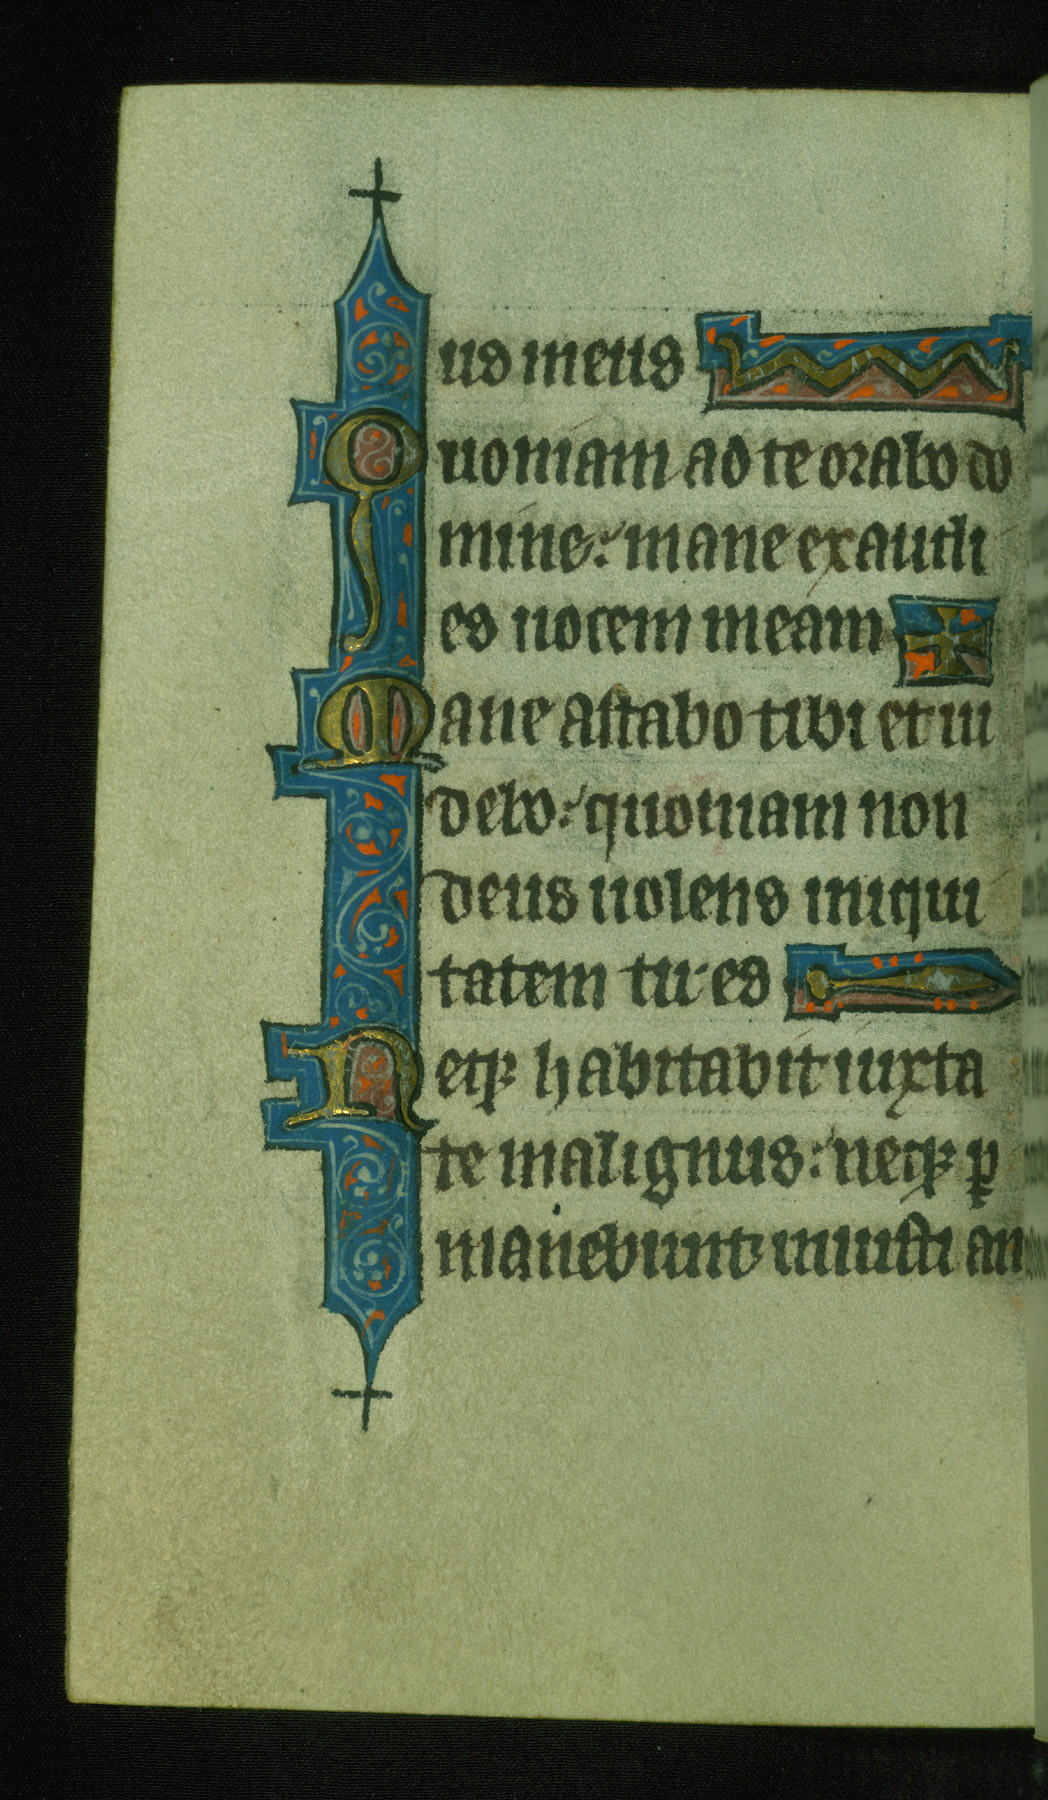 us meus
Quoniam ad te orabo do
mine: mane exaudi
es uocem meam
Mane astabo tibi et ui
debo: quoniam non
deus uolens iniqui
tatem tu es
Neqꝫ habitabit iuxta
te malignus: neqꝫ ꝑ
manebunt iniusti an